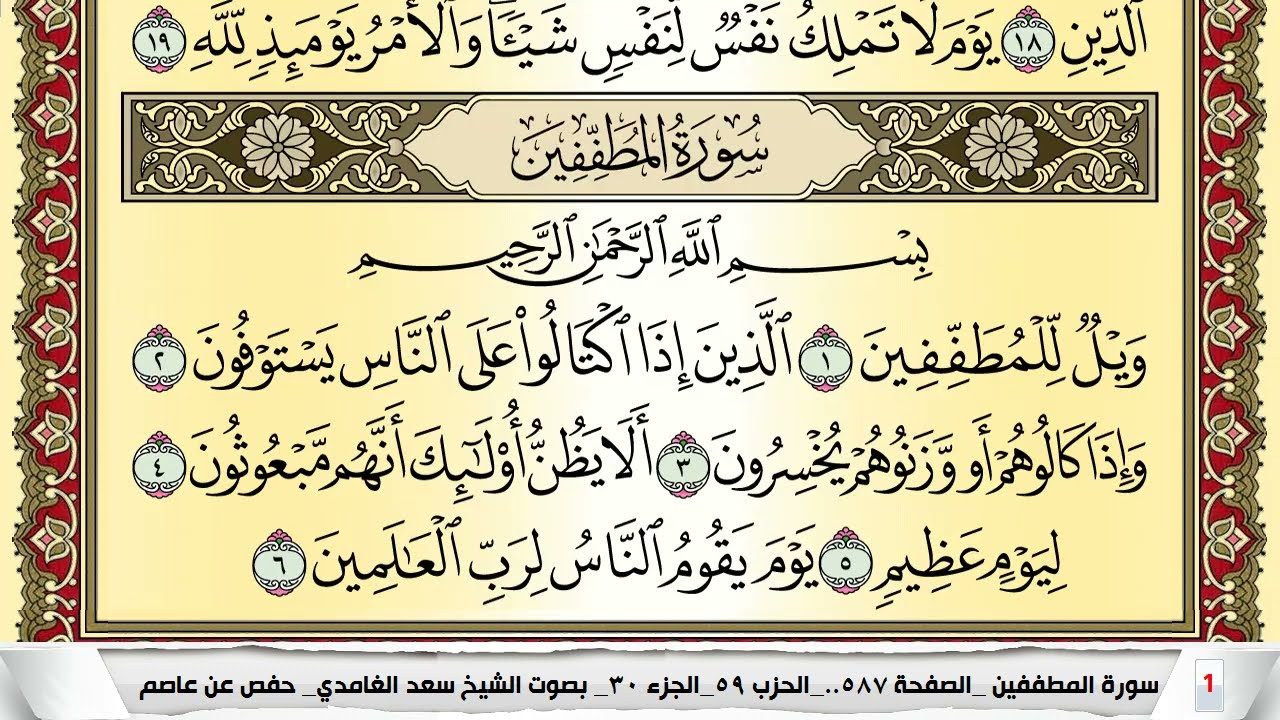 ٱلدِّينِ ١٨ يَوْمَ لَا تَمْلِكُ نَفْسٌ لِّنَفْسٍ شَيْـًٔا ۖ وَٱلْأَمْرُ يَوْمَئِذٍ لِّلَّهِ ١٩
سُورَةُ المُطَفِّفِينَ
بِسْمِ ٱللَّهِ ٱلرَّحْمَٰنِ ٱلرَّحِيمِ
وَيْلٌ لِّلْمُطَفِّفِينَ ١ ٱلَّذِينَ إِذَا ٱكْتَالُوا۟ عَلَى ٱلنَّاسِ يَسْتَوْفُونَ ٢
وَإِذَا كَالُوهُمْ أَو وَّزَنُوهُمْ يُخْسِرُونَ ٣ أَلَا يَظُنُّ أُو۟لَٰٓئِكَ أَنَّهُم مَّبْعُوثُونَ ٤
لِيَوْمٍ عَظِيمٍ ٥ يَوْمَ يَقُومُ ٱلنَّاسُ لِرَبِّ ٱلْعَٰلَمِينَ ٦
1 سورة المطففين _الصفحة ٥٨٧.._الحزب ٥٩_الجزء ٣٠_ بصوت الشيخ سعد الغامدي_ حفص عن عاصم